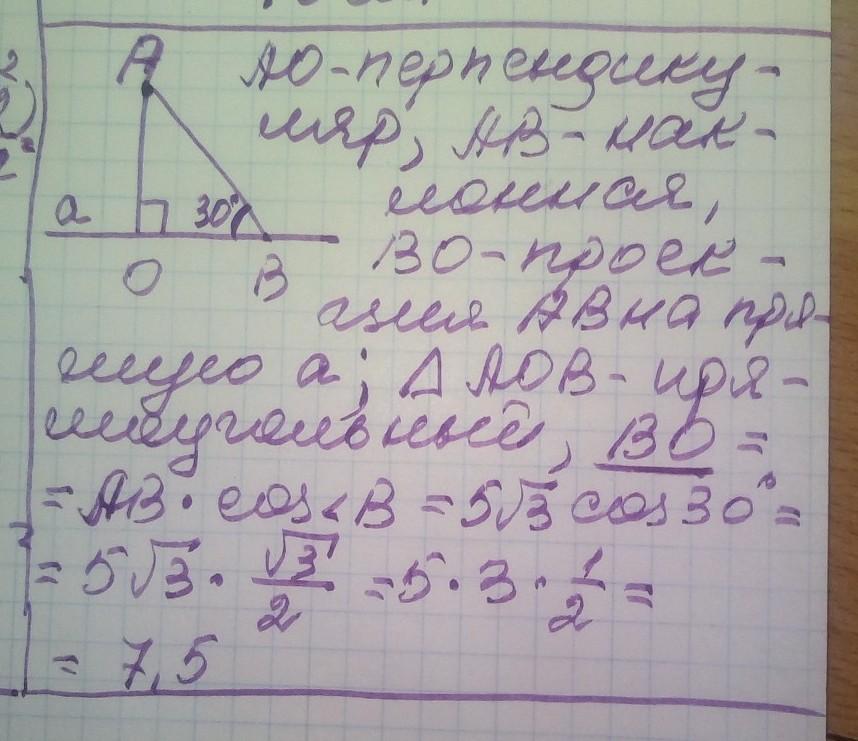 A
a
30°
O
B
АО-перпендику-
ляр, АВ-нак-
лонная,
ВО-проек-
ция АВ на пря-
мую а; Δ АОВ-пря-
моугольный, ВО =
= АВ · cos∠B = 5√3 cos 30° =
= 5√3 · √3/2 = 5 · 3 · 1/2 =
= 7,5